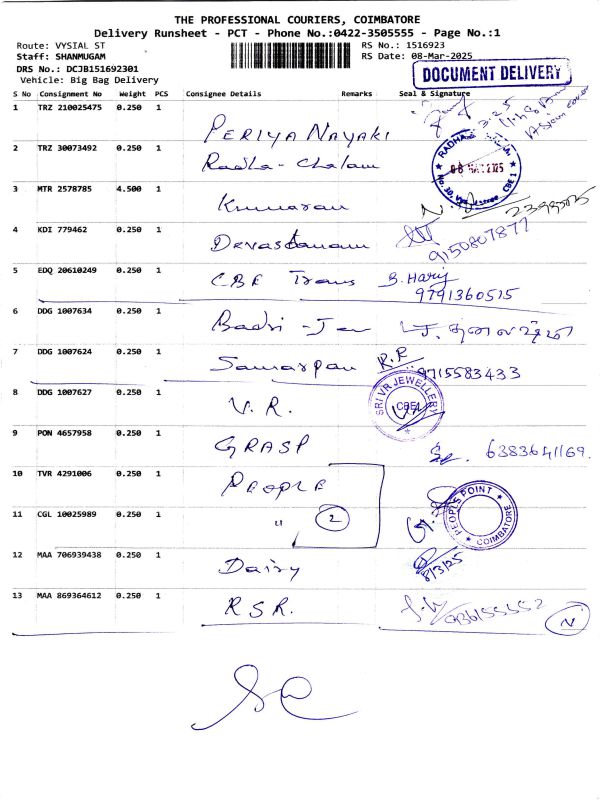 THE PROFESSIONAL COURIERS, COIMBATORE
Delivery Runsheet - PCT - Phone No.:0422-3505555 - Page No.:1
Route: VYSIAL ST
RS No.: 1516923
Staff: SHANMUGAM
RS Date: 08-Mar-2025
DRS No.: DCJB151692301
Vehicle: Big Bag Delivery
DOCUMENT DELIVERY
S No Consignment No Weight PCS Consignee Details Remarks Seal & Signature
1 TRZ 210025475 0.250 1 PERIYA NAYAKI
2 TRZ 30073492 0.250 1 Radha - Chalam
3 MTR 2578785 4.500 1 Kumaran
4 KDI 779462 0.250 1 Devastanam 9150807877
5 EDQ 20610249 0.250 1 CBE Trans B. Harij
9791360515
6 DDG 1007634 0.250 1 Badri - Jew
7 DDG 1007624 0.250 1 Samarpan R.R
9715583433
8 DDG 1007627 0.250 1 V. R. SRI VR JEWELLERY
CBE-1
9 PON 4657958 0.250 1 GRASP 6383641169.
10 TVR 4291006 0.250 1 PEOPLE
PEOPLE'S POINT
COIMBATORE
11 CGL 10025989 0.250 1 " 2
12 MAA 706939438 0.250 1 Dairy 8/3/25
13 MAA 869364612 0.250 1 RSR. N